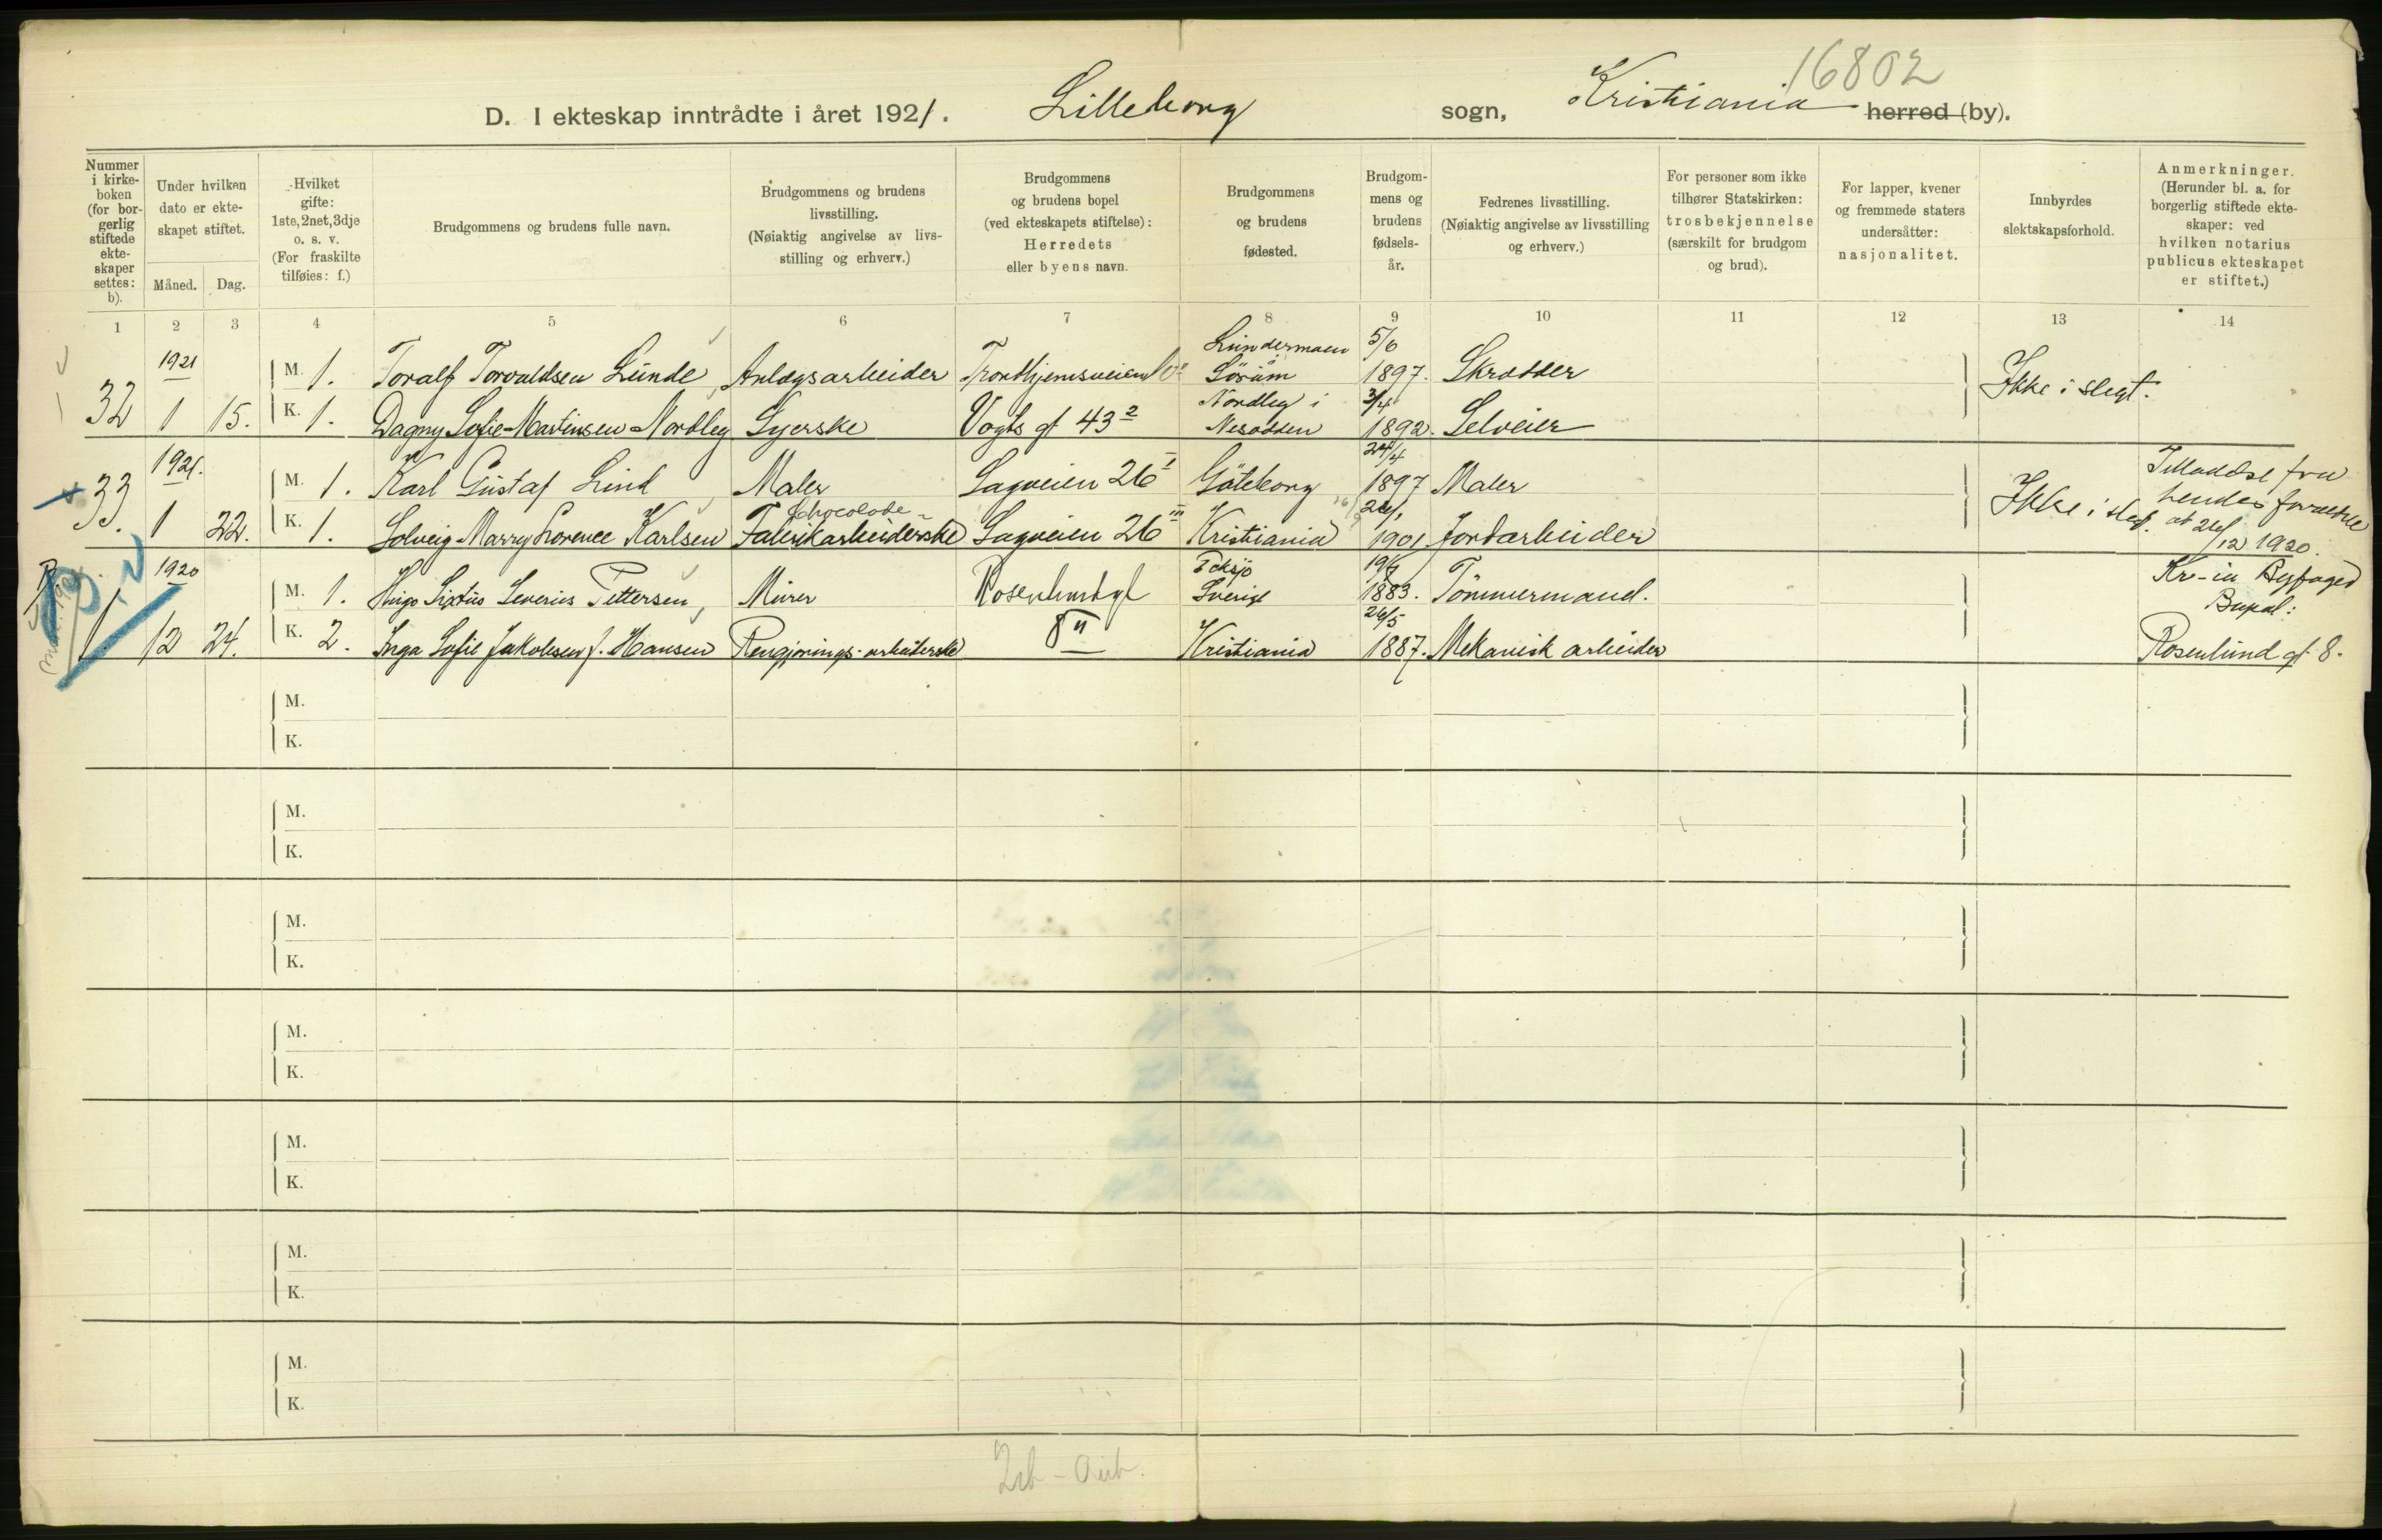 16802
D. I ekteskap inntrådte i året 1921. Lilleborg sogn, Kristiania herred (by).
Nummer i kirke-boken (for bor-gerlig stiftede ekte-skaper settes: b).
Under hvilken dato er ekte-skapet stiftet.
Måned. Dag.
Hvilket gifte: 1ste, 2net, 3dje o. s. v. (For fraskilte tilføies: f.)
Brudgommens og brudens fulle navn.
Brudgommens og brudens livsstilling. (Nøiaktig angivelse av livs-stilling og erhverv.)
Brudgommens og brudens bopel (ved ekteskapets stiftelse): Herredets eller byens navn.
Brudgommens og brudens fødested.
Brudgom-mens og brudens fødsels-år.
Fedrenes livsstilling. (Nøiaktig angivelse av livsstilling og erhverv.)
For personer som ikke tilhører Statskirken: trosbekjennelse (særskilt for brudgom og brud).
For lapper, kvener og fremmede staters undersåtter: nasjonalitet.
Innbyrdes slektskapsforhold.
Anmerkninger. (Herunder bl. a. for borgerlig stiftede ekte-skaper: ved hvilken notarius publicus ekteskapet er stiftet.)
1 2 3 4 5 6 7 8 9 10 11 12 13 14
1921 M. 1. Toralf Torvaldsen Lunde, Anlægsarbeider Trondhjemsveien Lundermoen Sörum 5/6 1897. Skrædder Ikke i slegt.
32 1 15. K. 1. Dagny Sofie Martinsen Nordley Syerske Vogts gt 43² Nordley i Nesodden 3/4 1892. Selveier
1921. M. 1. Karl Gustaf Lind, Maler Sagveien 26 I Göteborg 24/4 1897 Maler Ikke i slegt. Tilladelse fra hendes forældre
33. 1 22. K. 1. Solveig Marry Lorence Karlsen Chocolade-Fabrikarbeiderske Sagveien 26 III Kristiania 1901. Jordarbeider at 24/12 1920.
1920 M. 1. Hugo Sixtus Severius Pettersen, Murer Rosenlundgt Ecksjö Sverige 1883. Tömmermand. Kr-ia Byfoged
12 24. K. 2. Inga Sofie Jakobsen f. Hansen Rengjørings-arbeiderske 8 II Kristiania 26/5 1887. Mekanisk arbeider Bopæl: Rosenlund gt 8.
M.
K.
M.
K.
M.
K.
M.
K.
M.
K.
M.
K.
M.
K.